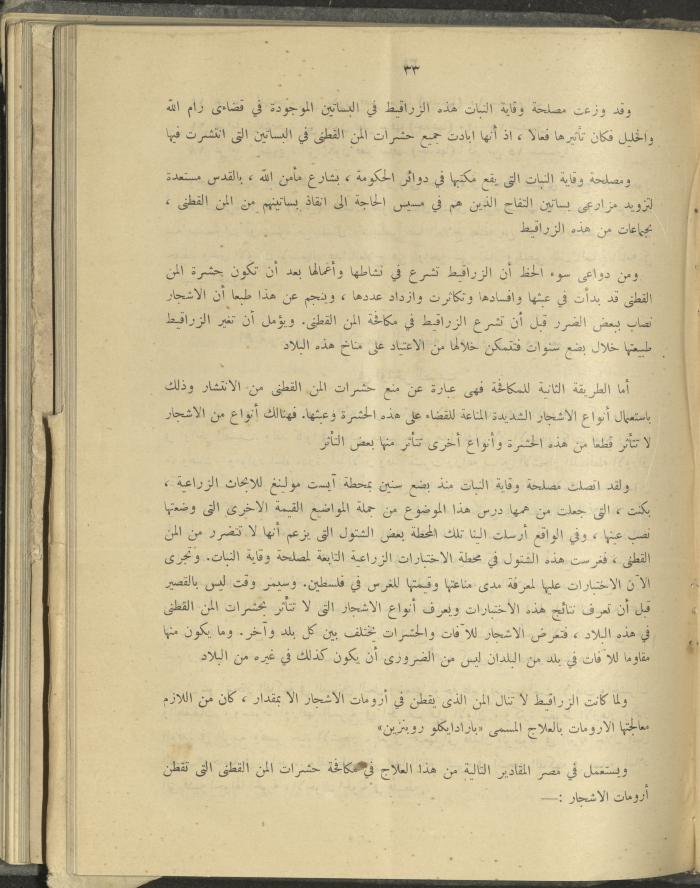 ٣٣
وقد وزعت مصلحة وقاية النبات هذه الزراقيط في البساتين الموجودة في قضاءى رام الله
والخليل فكان تأثيرها فعالا ، اذ أنها ابادت جميع حشرات المن القطنى في البساتين التى انتشرت فيها
ومصلحة وقاية النبات التى يقع مكتبها في دوائر الحكومة ، بشارع مأمن الله ، بالقدس مستعدة
لتزويد مزارعى بساتين التفاح الذين هم في مسيس الحاجة الى انقاذ بساتينهم من المن القطنى ،
بجماعات من هذه الزراقيط
ومن دواعى سوء الحظ أن الزراقيط تشرع في نشاطها وأعمالها بعد أن تكون حشرة المن
القطنى قد بدأت في عبثها وافسادها وتكاثرت وازداد عددها ، وينجم عن هذا طبعا أن الاشجار
تصاب ببعض الضرر قبل أن تشرع الزراقيط في مكافحة المن القطنى. ويؤمل أن تغير الزراقيط
طبيعتها خلال بضع سنوات فتتمكن خلالها من الاعتياد على مناخ هذه البلاد
أما الطريقة الثانية للمكافحة فهى عبارة عن منع حشرات المن القطنى من الانتشار وذلك
باستعمال أنواع الاشجار الشديدة المناعة للقضاء على هذه الحشرة وعبثها. فهنالك أنواع من الاشجار
لا تتأثر قطعا من هذه الحشرة وأنواع أخرى تتأثر منها بعض التأثر
ولقد اتصلت مصلحة وقاية النبات منذ بضع سنين بمحطة آيست مولينغ للابحاث الزراعية ،
بكنت ، التى جعلت من همها درس هذا الموضوع من جملة المواضيع القيمة الاخرى التى وضعتها
نصب عينها ، وفي الواقع أرسلت الينا تلك المحطة بعض الشتول التى يزعم أنها لا تتضرر من المن
القطنى ، فغرست هذه الشتول في محطة الاختبارات الزراعية التابعة لمصلحة وقاية النبات. وتجرى
الآن الاختبارات عليها لمعرفة مدى مناعتها وقيمتها للغرس في فلسطين. وسيمر وقت ليس بالقصير
قبل أن تعرف نتائج هذه الاختبارات ويعرف أنواع الاشجار التى لا تتأثر بحشرات المن القطنى
في هذه البلاد ، فتعرض الاشجار للآفات والحشرات يختلف بين كل بلد وآخر. وما يكون منها
مقاوما للآفات في بلد من البلدان ليس من الضرورى أن يكون كذلك في غيره من البلاد
ولما كانت الزراقيط لا تنال المن الذى يقطن في أرومات الاشجار الا بمقدار ، كان من اللازم
معالجتها الأرومات بالعلاج المسمى «بارادايكلو روبنزين»
ويستعمل في مصر المقادير التالية من هذا العلاج في مكافحة حشرات المن القطنى التى تقطن
أرومات الاشجار :—